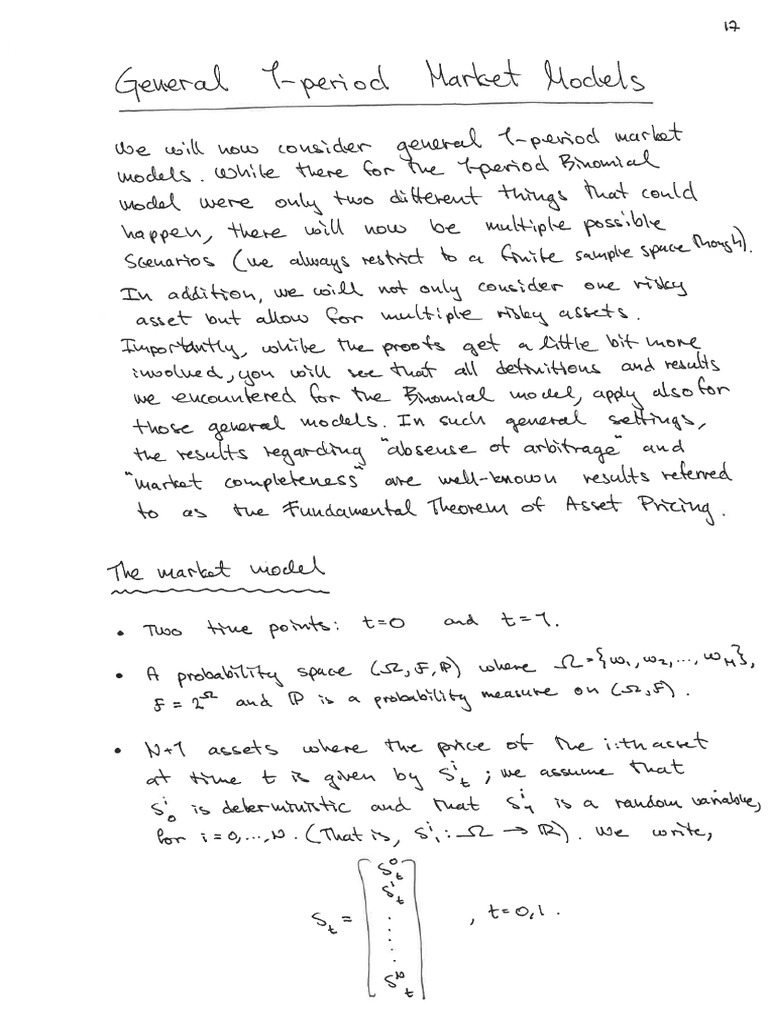 17
General 1-period Market Models
We will now consider general 1-period market
models. While there for the 1-period Binomial
model were only two different things that could
happen, there will now be multiple possible
scenarios (we always restrict to a finite sample space though).
In addition, we will not only consider one risky
asset but allow for multiple risky assets.
Importantly, while the proofs get a little bit more
involved, you will see that all definitions and results
we encountered for the Binomial model, apply also for
those general models. In such general settings,
the results regarding "absense of arbitrage" and
"market completeness" are well-known results referred
to as the Fundamental Theorem of Asset Pricing.
The market model
• Two time points: t=0 and t=1.
• A probability space (Ω, F, ℙ) where Ω={ω₁, ω₂, ..., ω_M},
F = 2^Ω and ℙ is a probability measure on (Ω, F).
• N+1 assets where the price of the i:th asset
at time t is given by S^i_t; we assume that
S^i_0 is deterministic and that S^i_1 is a random variable,
for i=0,...,N. (That is, S^i_1 : Ω → ℝ). We write,
S_t = [S^0_t S^1_t ...... S^N_t] , t=0,1.